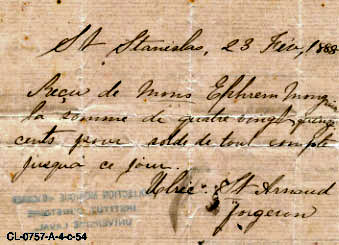 St Stanislas, 23 Fév, 1888
Reçu de Mons Ephrem
la somme de quatre vingt quinze
cents pour solde de tout compte
jusqua ce jour.
St Arnaud
Forgeron
CL-0757-A-4-c-54